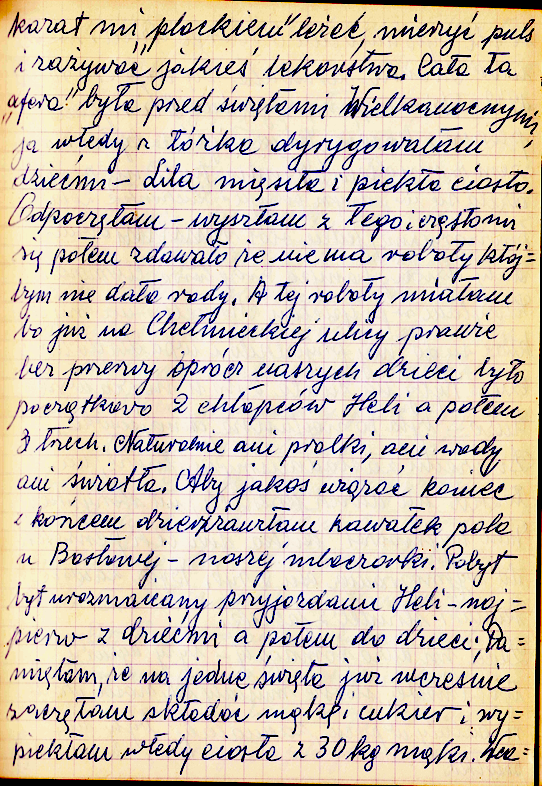 kazał mi plackiem leżeć, mierzyć puls
i zażywać jakieś lekarstwa. Cała ta
"afera" była przed świętami Wielkanocnymi,
ja wtedy z łóżka dyrygowałam
dziećmi – Lila mięsiła i piekła ciasto.
Odpoczęłam – wyszłam z tego i częstomi
się potem zdawało że nie ma roboty któj=
bym nie dała rady. A tej roboty miałam
bo już na Chełmieckiej ulicy prawie
bez przerwy oprócz naszych dzieci było
początkowo 2 chłopców Heli a potem
3 trzech. Naturalnie ani pralki, ani wody
ani światła. Aby jakoś wiązać koniec
z końcem dzierżawiłam kawałek pola
u Bastowej – naszej mleczarki. Pobyt
był urozmaicany przyjazdami Heli – naj=
pierw z dziećmi a potem do dzieci; Pa=
miętam, że na jedne święta już wcześnie
zaczęłam składać mąkę i cukier i wy=
piekłam wtedy ciasta z 30 kg mąki.